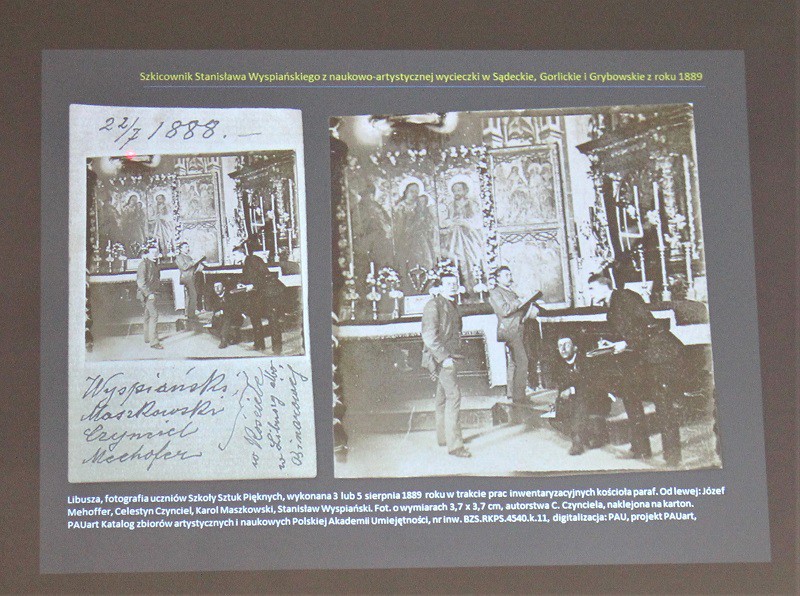 Szkicownik Stanisława Wyspiańskiego z naukowo-artystycznej wycieczki w Sądeckie, Gorlickie i Grybowskie z roku 1889
22/7 1888. —
Wyspiański
Maszkowski
Czynciel
Mechofer
w Kościele
w Libuszy albo
Binarowej
Libusza, fotografia uczniów Szkoły Sztuk Pięknych, wykonana 3 lub 5 sierpnia 1889 roku w trakcie prac inwentaryzacyjnych kościoła paraf. Od lewej: Józef
Mehoffer, Celestyn Czynciel, Karol Maszkowski, Stanisław Wyspiański. Fot. o wymiarach 3,7 x 3,7 cm, autorstwa C. Czynciela, naklejona na karton.
PAUart Katalog zbiorów artystycznych i naukowych Polskiej Akademii Umiejętności, nr inw. BZS.RKPS.4540.k.11, digitalizacja: PAU, projekt PAUart,